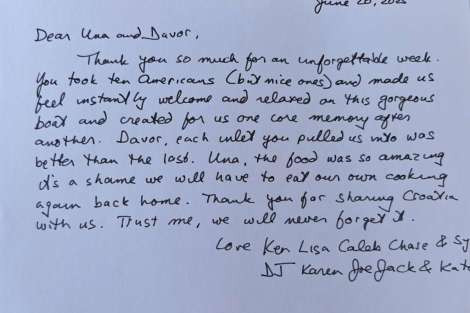 June 20, 2025
Dear Una and Davor,
Thank you so much for an unforgettable week.
You took ten Americans (but nice ones) and made us
feel instantly welcome and relaxed on this gorgeous
boat and created for us one core memory after
another. Davor, each inlet you pulled us into was
better than the last. Una, the food was so amazing
it's a shame we will have to eat our own cooking
again back home. Thank you for sharing Croatia
with us. Trust me, we will never forget it.
Love Ken Lisa Caleb Chase & Sy
DJ Karen Joe Jack & Kat